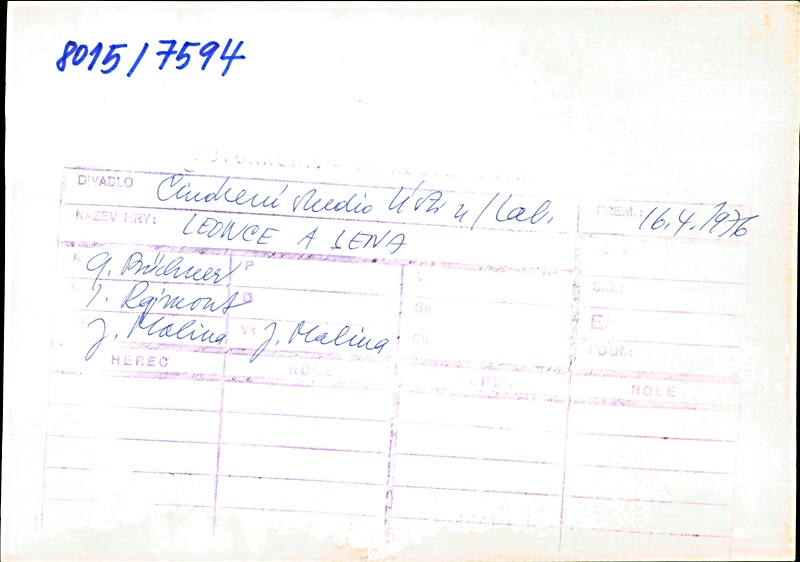 8015/7594
DIVADLO Činoherní studio Ústí n/Lab. PREM.: 16.4.1976
NÁZEV HRY: LEONCE A LENA
G. Büchner P L
I. Rajmont Sh
J. Malina Vt J. Malina Ch E/
HEREC ROLE HEREC ROLE